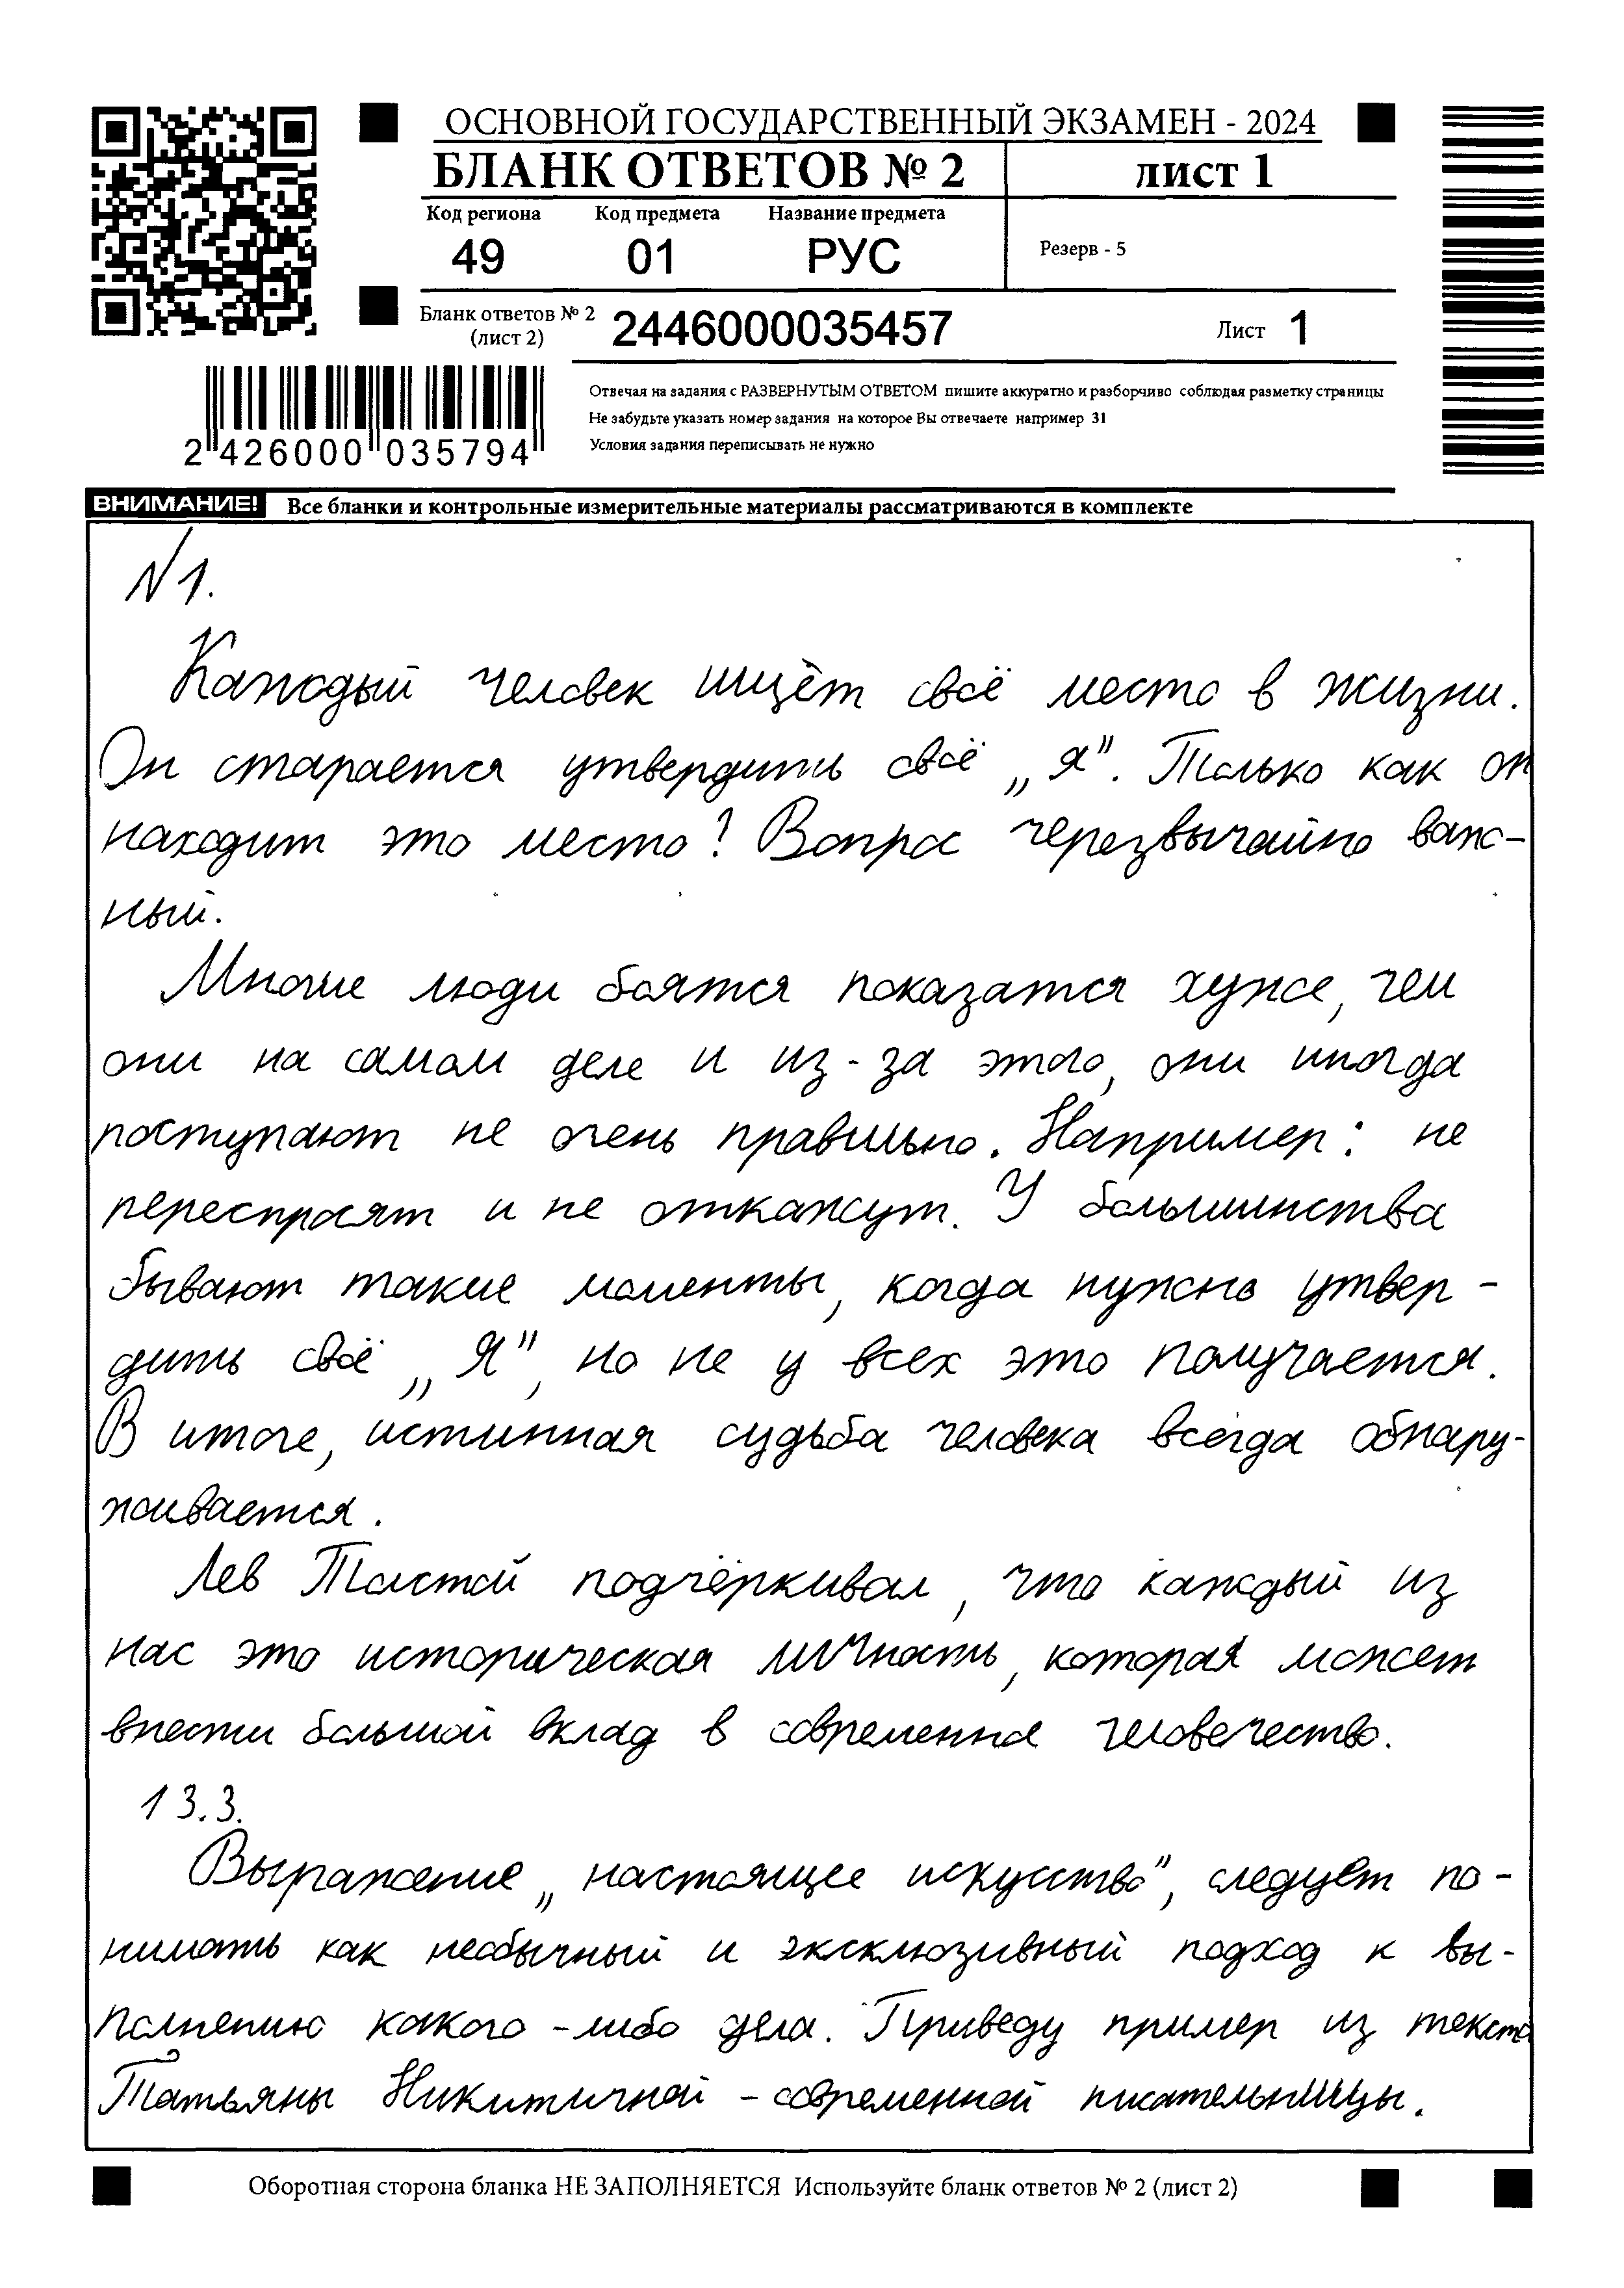 ОСНОВНОЙ ГОСУДАРСТВЕННЫЙ ЭКЗАМЕН - 2024
БЛАНК ОТВЕТОВ № 2
лист 1
Код региона Код предмета Название предмета
49 01 РУС
Резерв - 5
Бланк ответов № 2
(лист 2)
2446000035457
Лист 1
2 426000 035794
Отвечая на задания с РАЗВЕРНУТЫМ ОТВЕТОМ пишите аккуратно и разборчиво соблюдая разметку страницы
Не забудьте указать номер задания на которое Вы отвечаете например 31
Условия задания переписывать не нужно
ВНИМАНИЕ! Все бланки и контрольные измерительные материалы рассматриваются в комплекте
N1.
Каждый человек ищёт своё место в жизни.
Он старается утвердить своё „я". Только как он
находит это место? Вопрос черезвычайно важ-
ный.
Многие люди боятся показатся хуже, чем
они на самом деле и из-за этого, они иногда
поступают не очень правильно. Например: не
переспрсят и не откажут. У большинства
бывают такие моменты, когда нужно утвер-
дить своё „Я", но не у всех это получается.
В итоге, истинная судьба человека всегда обнару-
живается.
Лев Толстой подчёркивал, что каждый из
нас это историческая личность, которая может
внести большой вклад в современное человечество.
13.3.
Выражение „настоящее искусство", следует по-
нимать как необычный и эксклюзивный подход к вы-
полнению какого-либо дела. Приведу пример из текста
Татьяны Никитичной - современной писательницы.
Оборотная сторона бланка НЕ ЗАПОЛНЯЕТСЯ Используйте бланк ответов № 2 (лист 2)